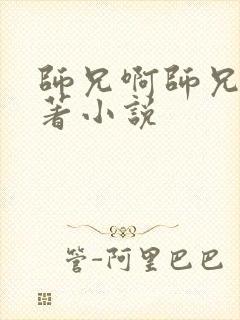 師兄啊師兄
著小説
管-阿里巴巴